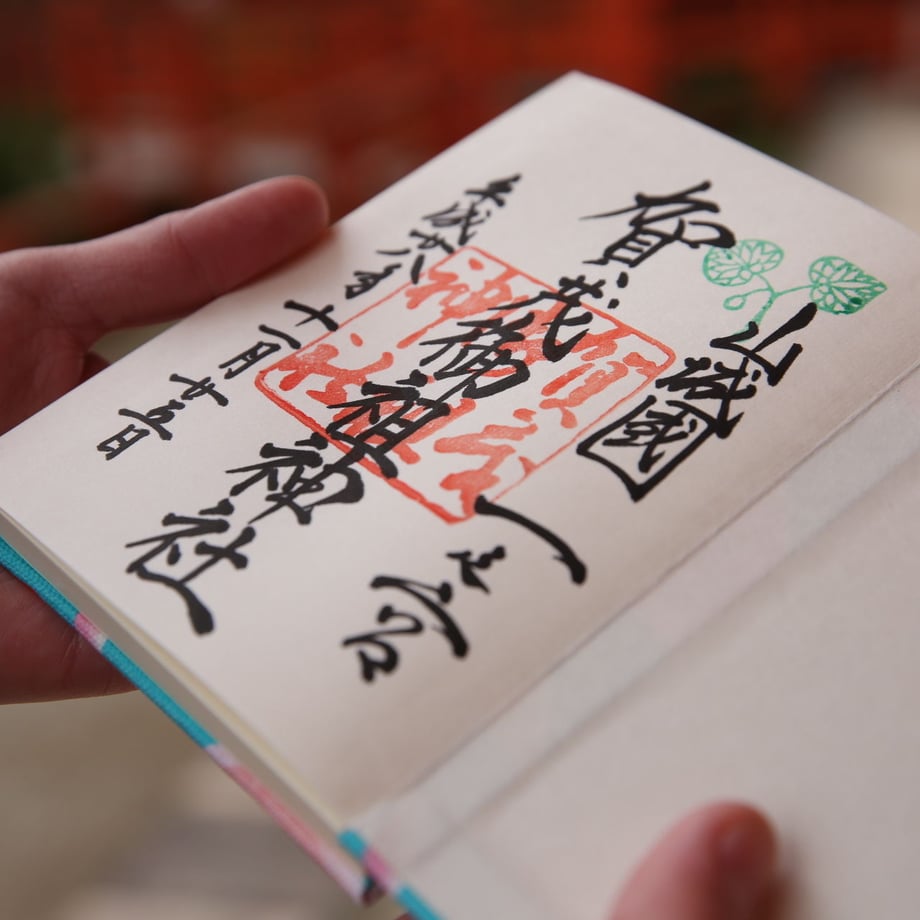 山城國一之宮
賀茂御祖神社
平成廿八年十一月廿五日
賀茂
御祖
神社